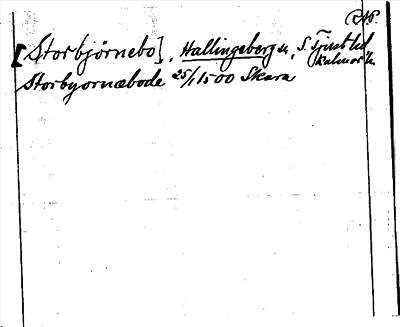 [Storbjörnebo], Hallingeberg sn, S. Tjust hd
Kalmar län
Storbyornæbode 25/1 1500 Skara